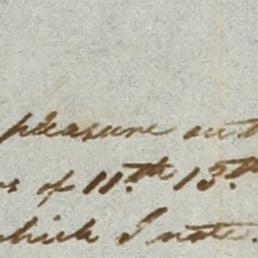 pleasure
of 11th 15th
which I note